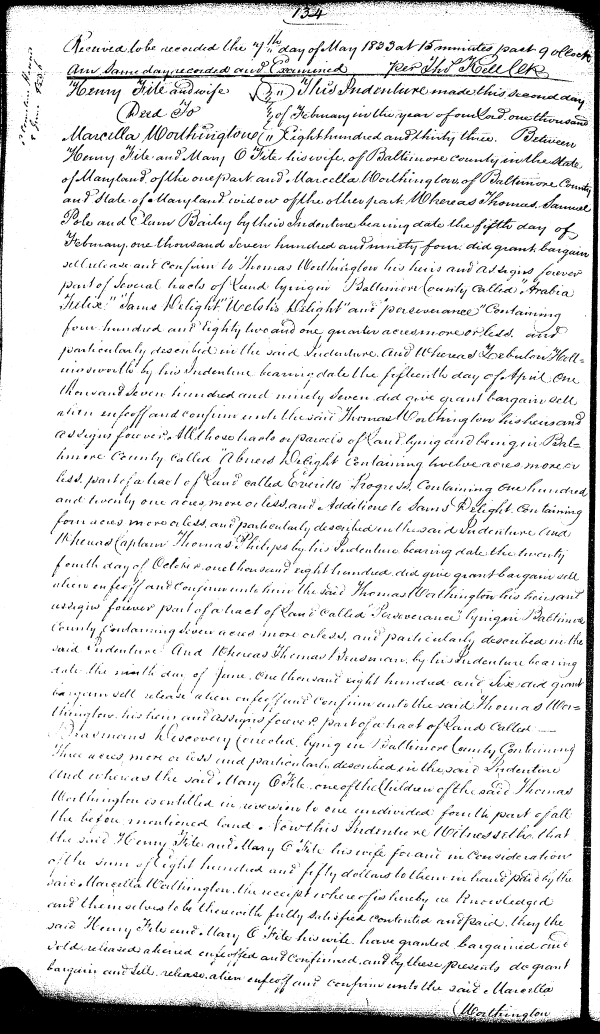 134
Received to be recorded the 7th day of May 1833 at 15 minutes past 9 oClock
Am Same day recorded and Examined per Thos Kell Clk
Henry Fite and wife This Indenture made this second day
Deed To of February in the year of our Lord, one thousand
Marcella Worthington Eight hundred and thirty three. Between
Henry Fite and Mary O Fite his wife, of Baltimore county in the state
of Maryland of the one part and Marcella Worthington, of Baltimore County
and State of Maryland widow of the other part. Whereas Thomas, Samuel
Pole and Bailey by their Indenture bearing date the fifth day of
February, one thousand seven hundred and ninety four. did grant, bargain
sell release and confirm to Thomas Worthington his heirs and assigns forever
part of several tracts of Land lying in Baltimore County called "Arabia
Felix" "Sams Delight" "Welshs Delight" and "perseverance" Containing
four hundred and Eighty two and one quarter acres more or less. and
particularly described in the said Indenture. And Whereas Zebulon Holl=
insworth by his Indenture bearing date the fifteenth day of April, One
thousand seven hundred and ninety seven. did give grant bargain sell
alien enfeoff and confirm unto the said Thomas Worthington his heirs and
assigns forever. All those tracts or parcels of Land lying and being in Bal=
timore County called "Abners Delight Containing twelve acres more or
less, part of a tract of Land called Everitts Progress, Containing One hundred
and twenty one acres, more or less, and Additions to Sams Delight. containing
four acres more or less, and particularly described in the said Indenture And
Whereas Captain Thomas Philips by his Indenture bearing date the twenty
fourth day of October. one thousand eight hundred. did give grant bargain sell
alien enfeoff and confirm unto him the said Thomas Worthington his heirs and
assigns forever part of a tract of Land called "Perseverance" lying in Baltimore
County, containing seven acres more or less, and particularly described in the
said Indenture And Whereas Thomas by his Indenture bearing
date the ninth day of June, One thousand eight hundred and Six did grant
bargain sell release alien enfeoff and confirm unto the said Thomas Wor=
thington, his heirs and assigns forever part of a tract of Land Called
Discovery corrected, lying in Baltimore County Containing
Three acres, more or less and particularly described in the said Indenture
And whereas the said Mary O Fite, one of the Children of the said Thomas
Worthington is entitled in reversion to one undivided fourth part of all
the before mentioned land. Now this Indenture Witnesseth that
the said Henry Fite and Mary O Fite his wife for and in consideration
of the sum of Eight hundred and fifty dollars to them in hand paid by the
said Marcella Worthington, the receipt whereof is hereby ac knowledged
and themselves to be therewith fully satisfied contented and paid, they the
said Henry Fite and Mary O Fite his wife have granted bargained and
sold released aliened enfeoffed and confirmed, and by these presents do grant
bargain and sell, release, alien enfeoff and confirm unto the said Marcella
Worthington